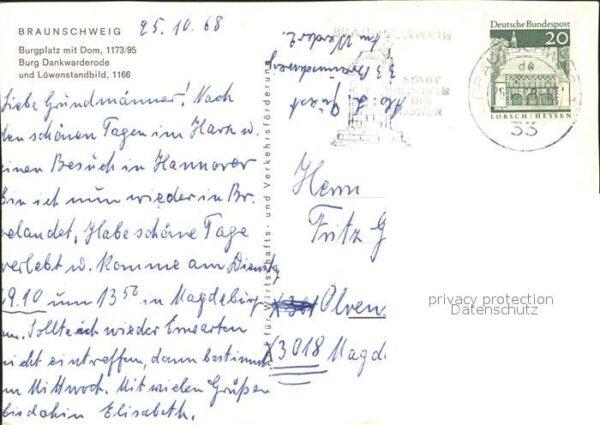 BRAUNSCHWEIG
25.10.68
Burgplatz mit Dom, 1173/95
Burg Dankwarderode
und Löwenstandbild, 1166
Liebe Grundmänner! Nach
den schönen Tagen im Harz u.
einen Besuch in Hannover
bin ich nun wieder in Br.
gelandet. Habe schöne Tage
verlebt u. komme am Dienstag
29.10 um 13 50 in Magdeburg
an. Sollte ich wieder Erwarten
nicht eintreffen, dann bestimmt
am Mittwoch. Mit vielen Grüßen
bis dahin Elisabeth.
für Wirtschafts- und Verkehrsförderung
Abs:
33 Braunschweig
STADT
HEINRICH
DES
LÖWEN
33
Deutsche Bundespost
20
LORSCH/HESSEN
Herrn
Fritz G
Olven
X3018 Magd
privacy protection
Datenschutz